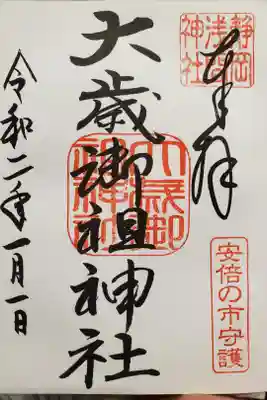 奉拝
静岡
浅間
神社
安倍の市守護
大歳御祖神社
大歳御
祖神社
令和二年一月一日